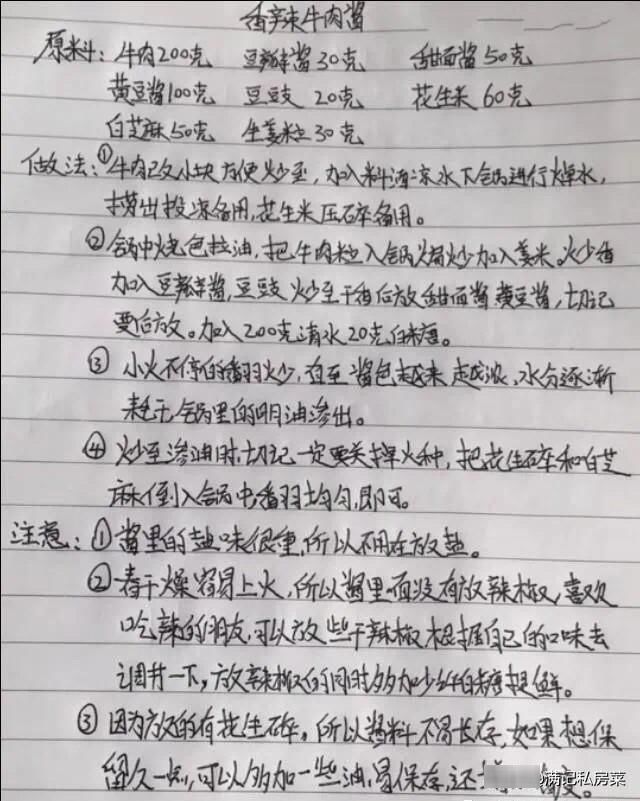 香辣牛肉酱
原料: 牛肉200克 豆瓣酱30克 甜面酱50克
黄豆酱100克 豆豉 20克 花生米 60克
白芝麻50克 生姜米粒30克
做法:①牛肉改小块方便炒至,加入料酒凉水下锅进行焯水,
捞出投凉备用,花生米压碎备用。
②锅中烧色拉油,把牛肉粒入锅煸炒加入姜米。炒香
加入豆瓣酱,豆豉 炒至干香后放甜面酱黄豆酱,切记
要后放。加入200克清水20克白糖。
③ 小火不停的翻炒,直至酱色越来越浓,水分逐渐
耗干锅里的明油渗出。
④ 炒至渗油时切记一定要关掉火种,把花生碎和白芝
麻倒入锅中翻均匀,即可。
注意:①酱里的盐味很重,所以不用在放盐。
②春干燥容易上火,所以酱里面没有放辣椒,喜欢
吃辣的朋友,可以放些干辣椒根据自己的口味去
调节一下,放辣椒的同时多加少许白糖提鲜。
③因为放的有花生碎,所以酱料不易长存,如果想保
留久一点,可以多加一些油,易保存,还
满记私房菜